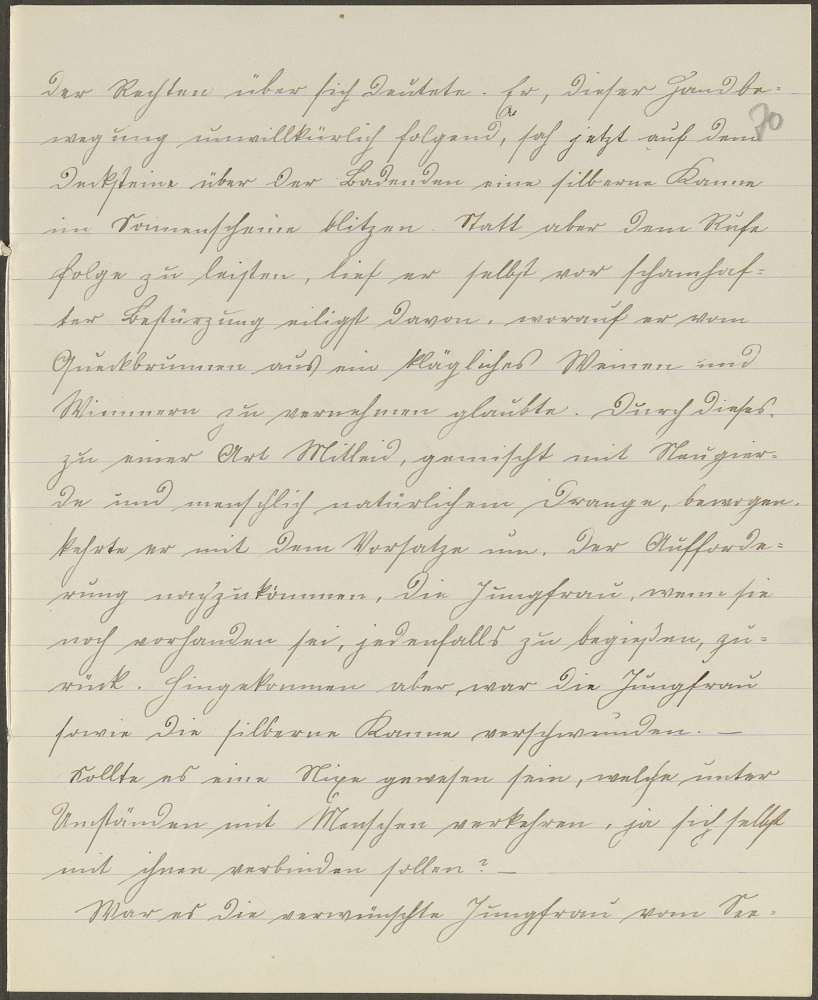 der Rechten über sich deutete. Er, dieser Handbe-
70
wegung unwillkürlich folgend, sah jetzt auf dem
Decksteine über der Badenden eine silberne Kanne
im Sonnenscheine blitzen. Statt aber dem Rufe
folge zu leisten, lief er selbst vor schamhaf-
ter Bestürzung eiligst davon, worauf er vom
Queckbrunnen aus ein klägliches Weinen und
Wimmern zu vernehmen glaubte. Durch dieses,
zu einer Art Mitleid, gemischt mit Neugier-
de und menschlich natürlichem Drange, bewogen,
kehrte er mit dem Vorsatze um, der Aufforde-
rung nachzukommen, die Jungfrau, wenn sie
noch vorhanden sei, jedenfalls zu begießen, zu-
rück. Hingekommen aber, war die Jungfrau
sowie die silberne Kanne verschwunden. —
Sollte es eine Nixe gewesen sein, welche unter
Umständen mit Menschen verkehren, ja sich selbst
mit ihnen verbinden sollen? —
War es die verwünschte Jungfrau vom See-